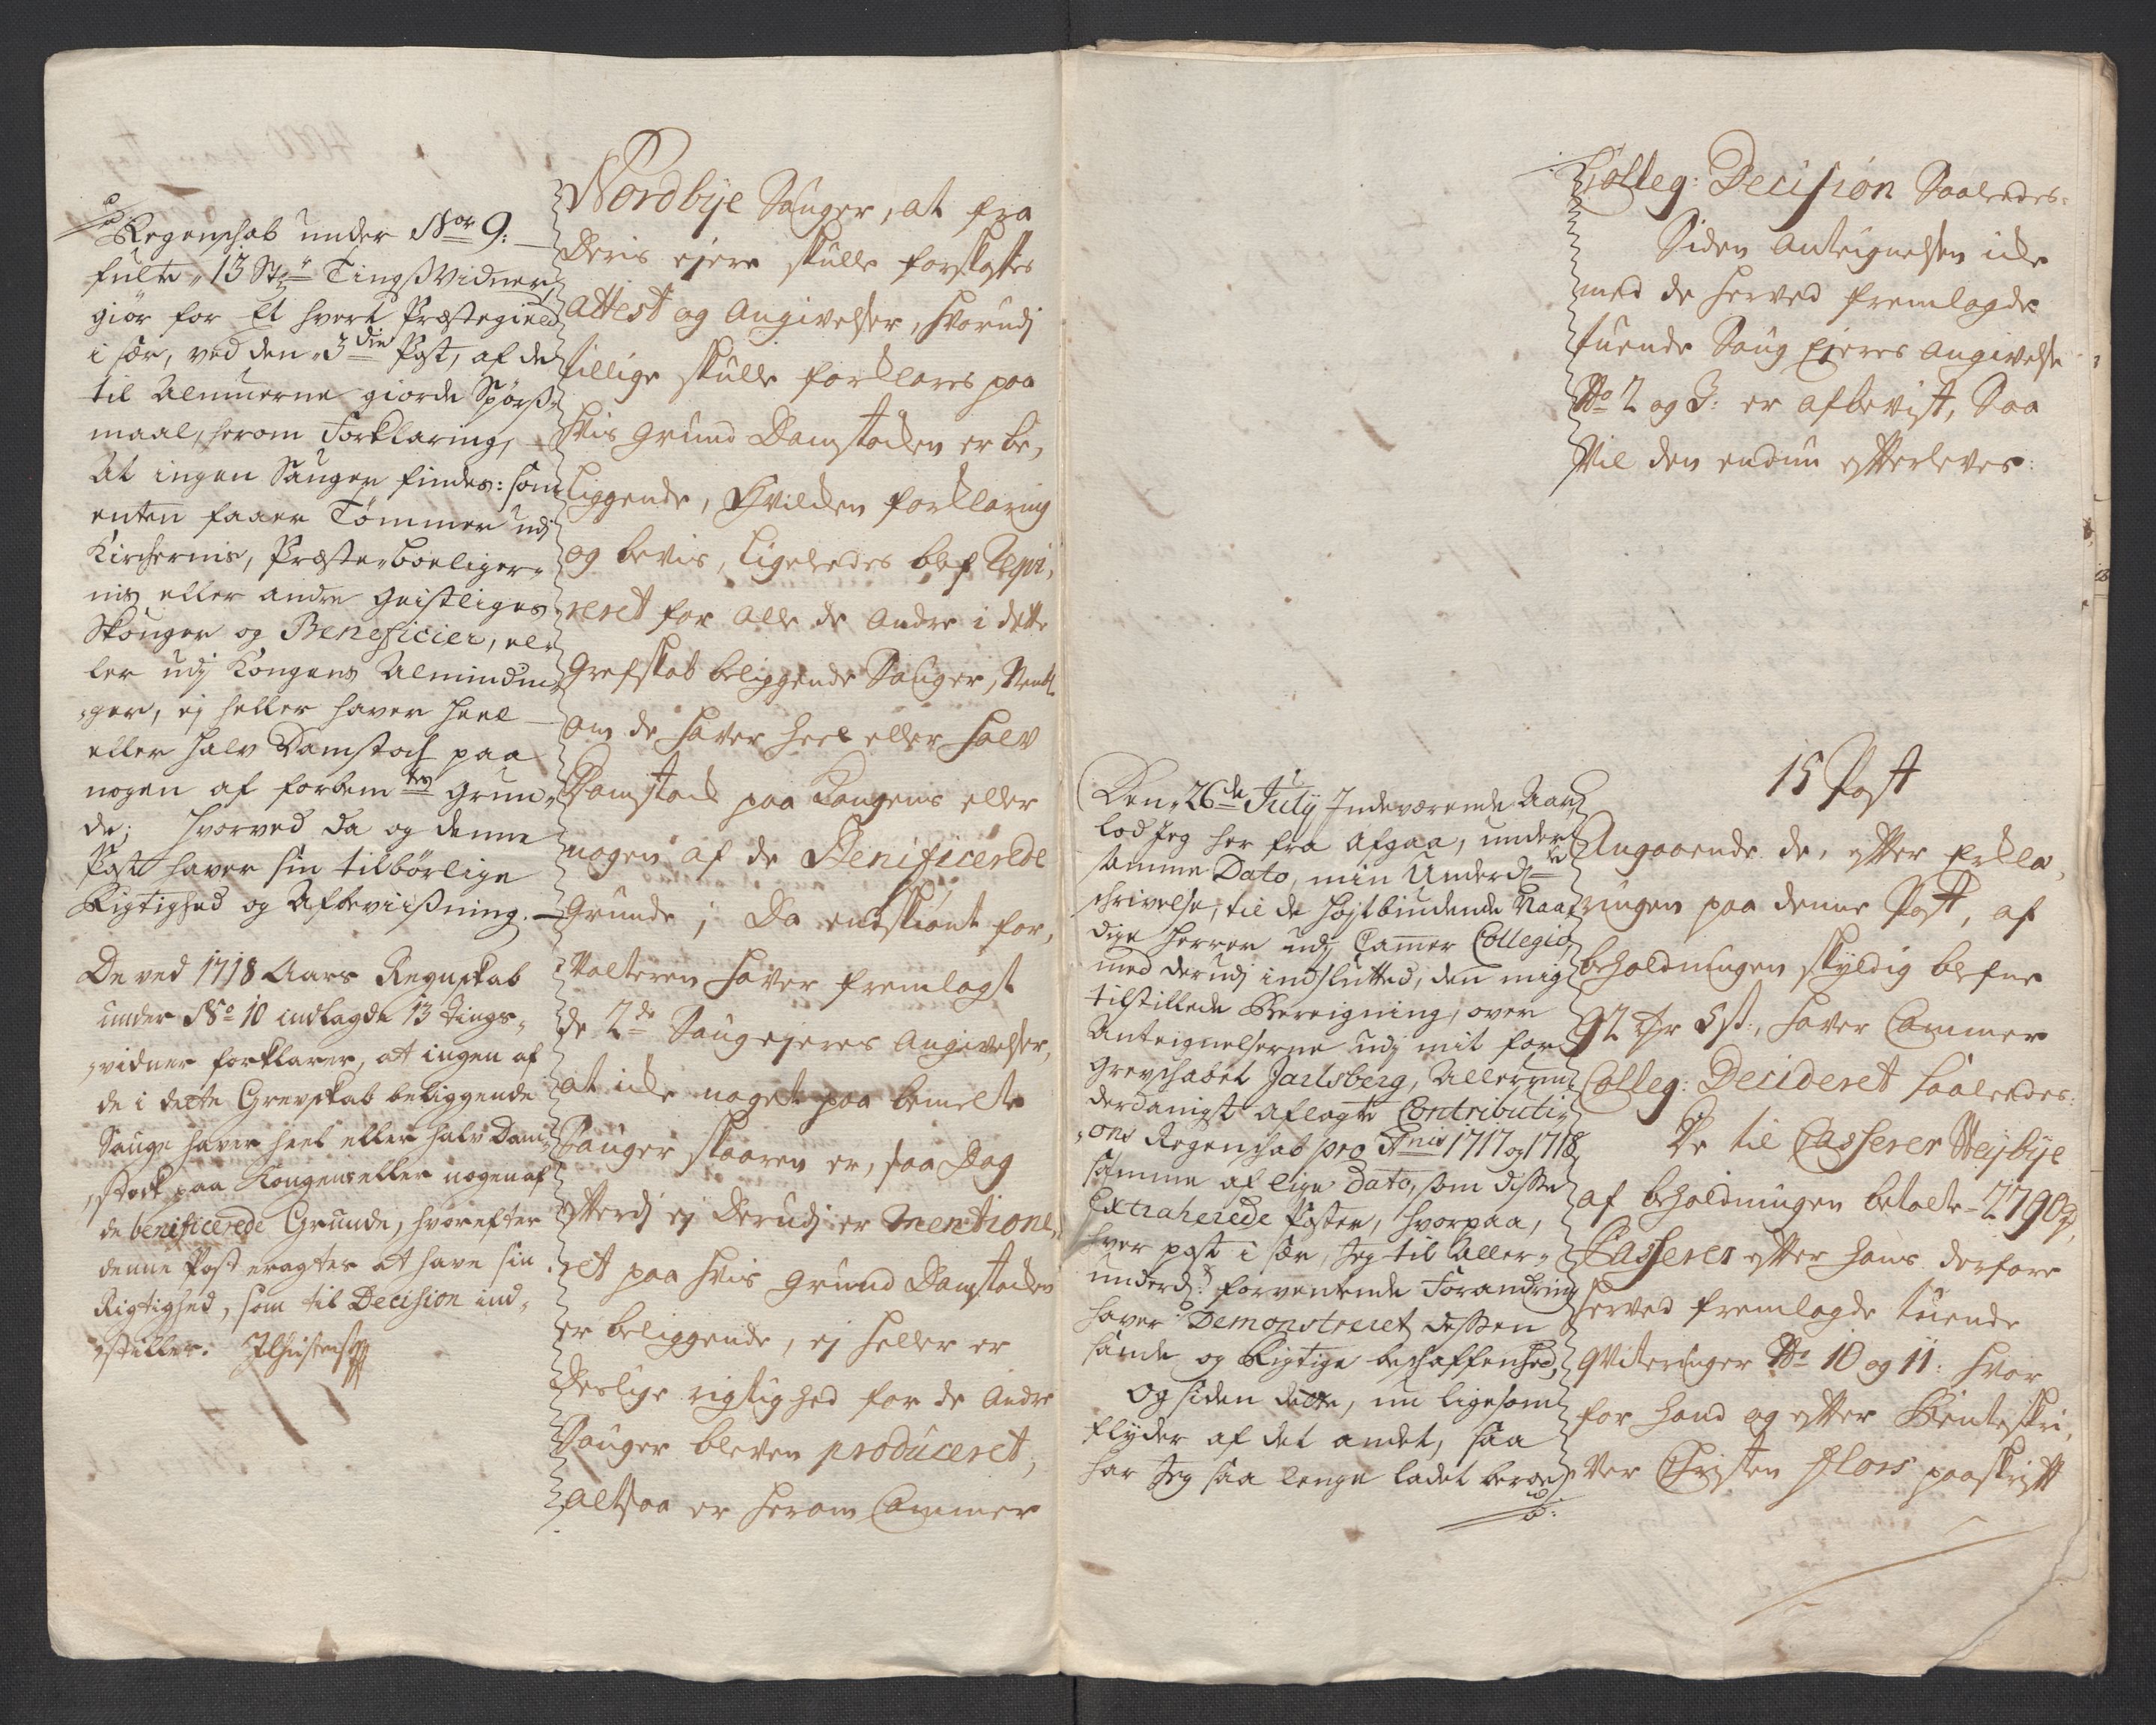 Regenschab under Nor 9:
fulte 13 Stk: Tingsvidner,
giør for Et hvert Præstegield
i sær, ved den 3die Post, af de
til Almuerne giorde Spørß-
maal, herom Forklaring,
At ingen Sauger findes: som
enten faaer Tømmer udj
Kirchernis, Præste-boeliger-
nis eller andre Geistliges
Skouger og Beneficier, el-
ler udj Kongens Almindin-
ger, ej heller haver heel
eller halv Damstoch paa
nogen af forbemte Grun-
de; hvorved da og denne
Post haver sin tilbørlige
Rigtighed og Afbeviißning.
De ved 1718 Aars Regnskab
under No 10 indlagde 13 tings-
vidner forklarer, at ingen af
de i dette Grevskab beliggende
Sauge haver heel eller halv Dam-
stock paa Kongens eller nogen af
de benificerede Grunde, hvorefter
denne Post eragtes at have sin
Rigtighed, som til Decision ind-
stilles.
Nordbye Sauger, at fra
Deris ejere skulle forskaffes
Attest og Angivelser, hvorudj
tillige skulle forklares paa
hvis grund Damstocken er be-
liggende, hvilcken forklaring
og bevis, ligeledes blef Reqvi-
reret for alle de andre i dette
Grefskab beliggende Sauger, Nembl.
om de haver heel eller halv
Damstock paa Kongens eller
nogen af de Benificerede
Grunde; Da endskiønt for-
valteren haver fremlagt
de 2de Saugejeres Angivelser,
at icke noget paa bemelte
Sauger skaaren er, saa Dog
efterdj ej derudj er mentione-
ret paa hvis grund Damstocken
er beliggende, ej heller er
deslige rigtighed for de andre
Sauger bleven produceret,
altsaa er herom Cammer
Colleg: Decision Saaledes:
Siden Anteignelsen icke
med de herved fremlagde
tuende Saug Ejeres angivelse
No 2 og 3: er afbevist, Saa
Vil den endnu efterleves:
Den 26de July Indeværende Aar,
lod Jeg her fra afgaa, under
samme Dato, min Underd:
schrivelse, til de høytbiudende Naa-
dige Herrer udj Cammer Collegio
med derudj indslutted, den mig
tilstillede Bereigning, over
Anteignelserne udj mit for
Grevschabet Jarlsberg, Allerun-
derdanigst aflagte Contributi-
ons Regenschab pro Anis 1717 og 1718,
samme af lige Dato, som disse
Extraherede Poster, hvorpaa,
hver post i sær, Jeg til Aller-
underd: forventende Forandring
haver Demonstreret dessen
sande og Rigtige beschaffenhed,
og siden dette, nu ligesom
flyder af det andet, saa
har Jeg saa lenge ladet beroe
15 Post
Angaaende de, efter Erkla-
ringen paa denne Post, af
beholdningen skyldig blefne
92 Dr 5 s:, haver Cammer
Colleg: Decideret saaledes:
De til Casserer Wejbye
af beholdningen betalte 2790
Casserer efter hans derfore
herved fremlagde tuende
Qviteringer No 10 og 11: hvor
for hand og efter Renteskri-
ver Christen Flors paaskrift